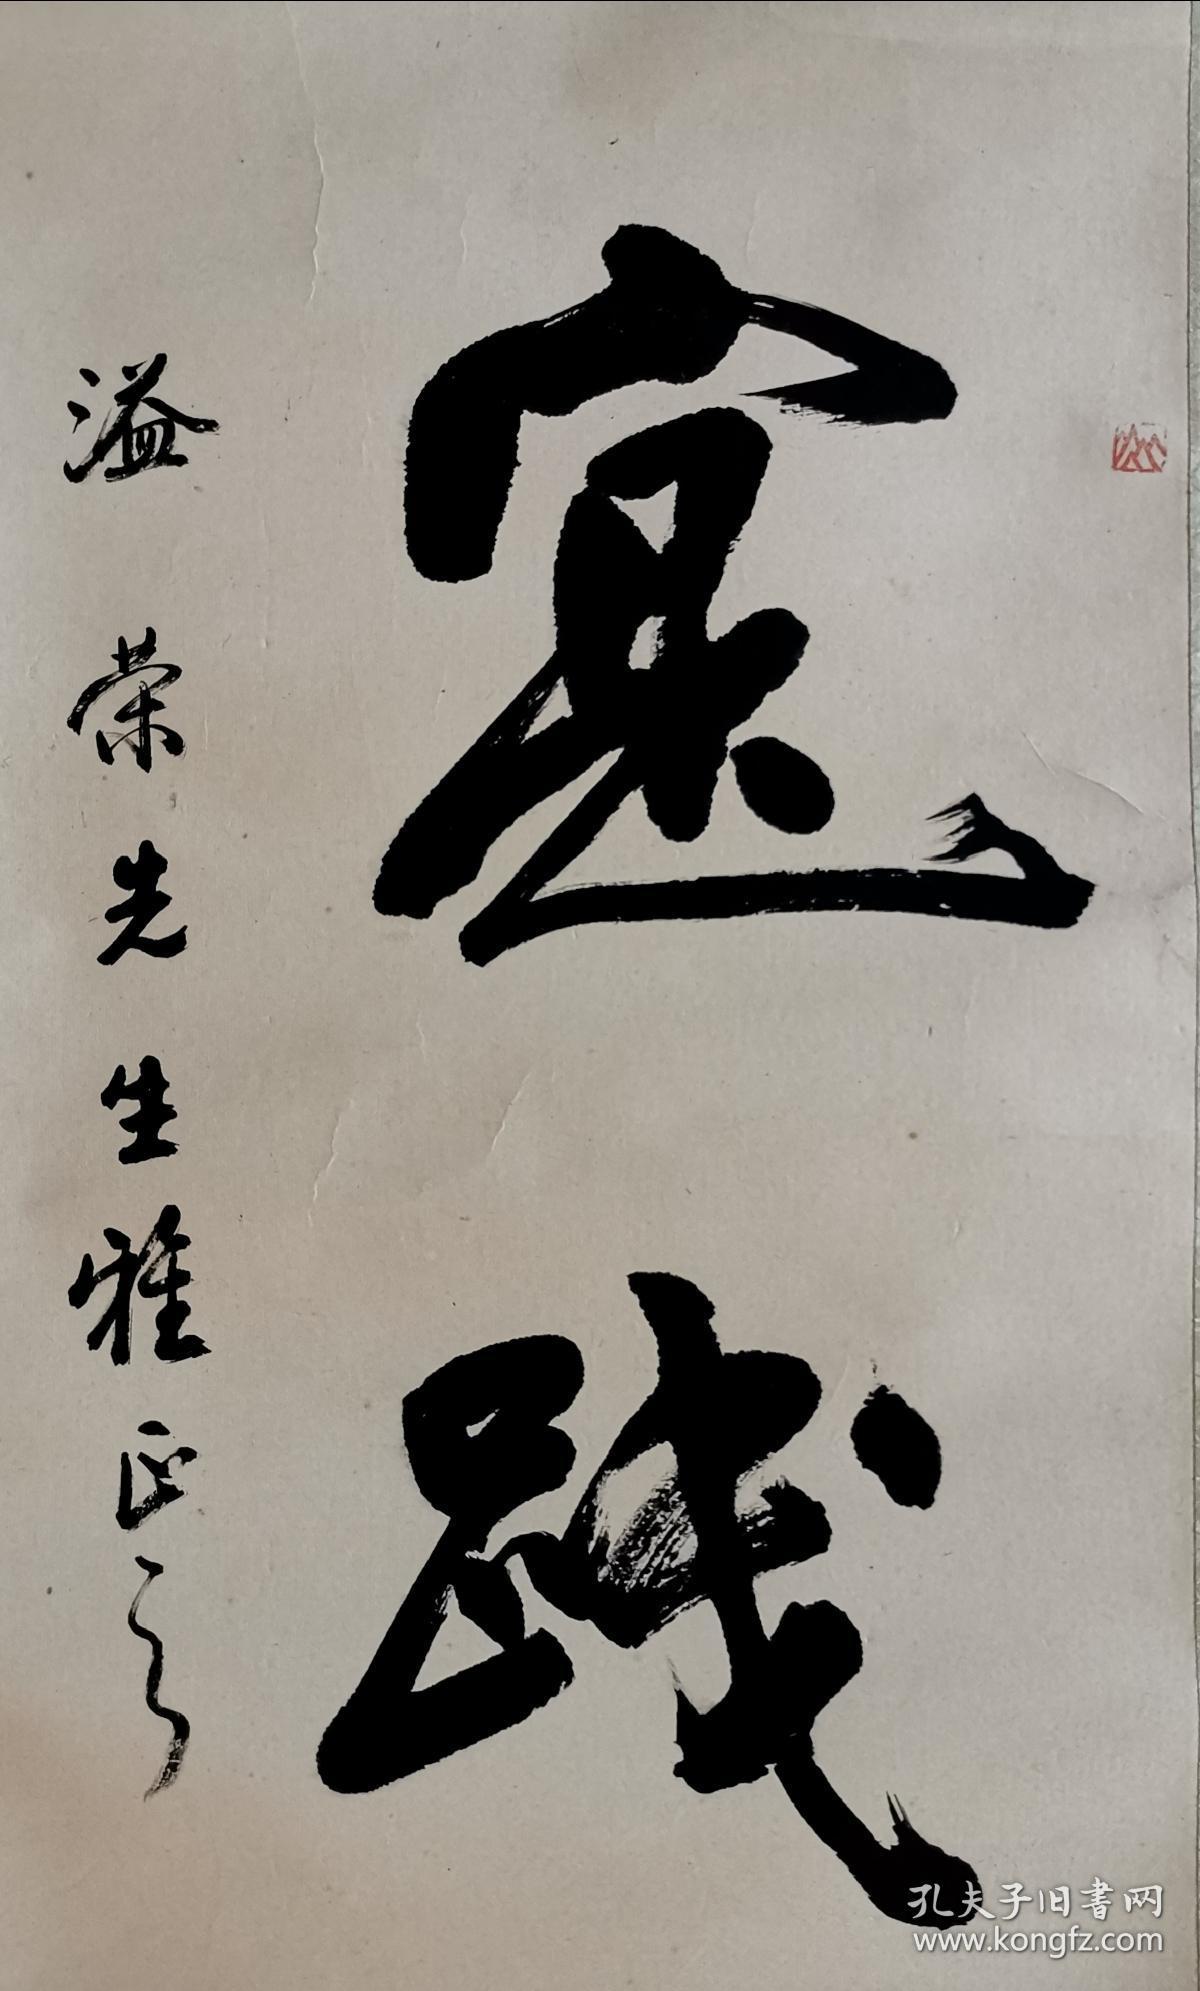 寔踐
溢荣先生雅正之
孔夫子旧書网
www.kongfz.com